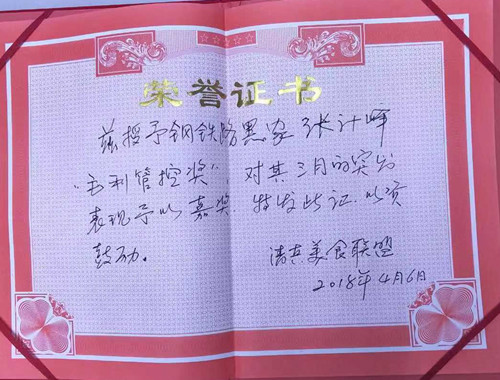 荣誉证书
兹授予钢铁路思家张计峰
“毛利管控奖” 对其三月的突出
表现予以嘉奖.特发此证.以资
鼓励。
清真美食联盟
2018年4月6日